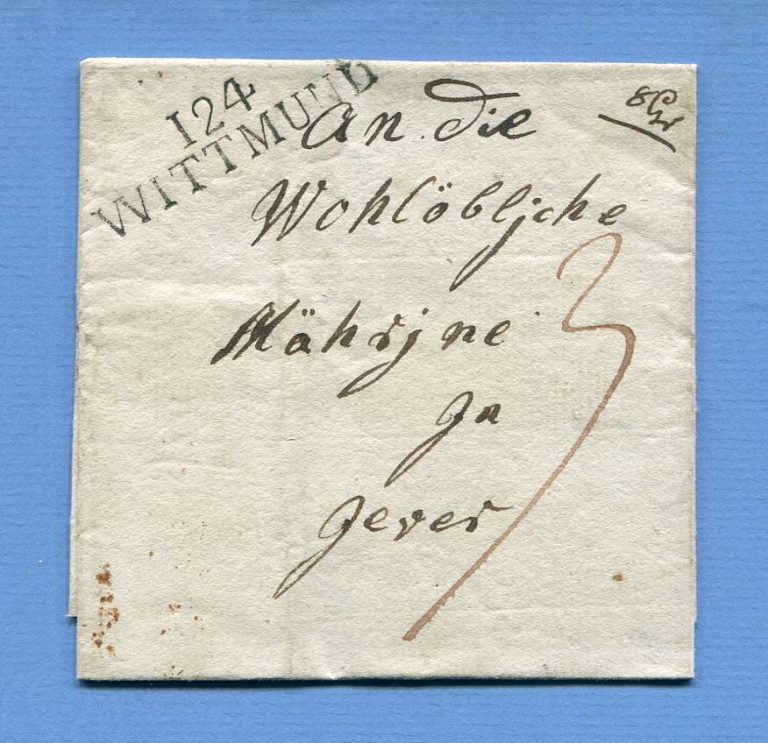 124
WITTMUND
An die
Wohlöbljche
Mährjne
Jn
Jever
3